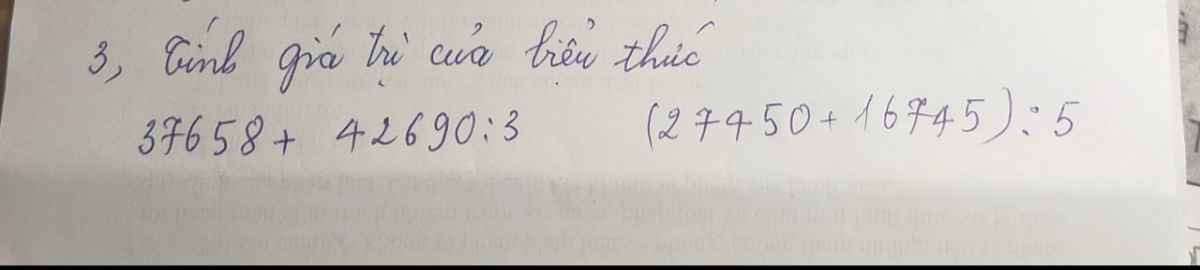 3, Tính giá trị của biểu thức
37658 + 42690 : 3 (27450 + 16745) : 5